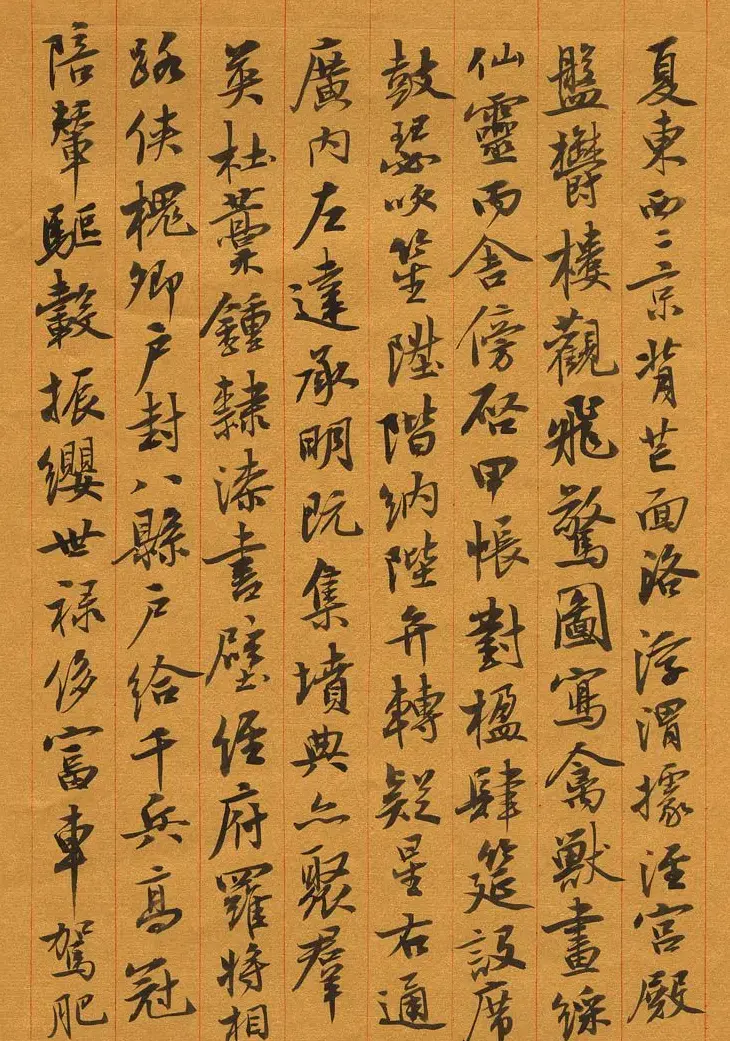 夏東西二京背芒面洛浮渭據涇宮殿
盤鬱樓觀飛驚圖寫禽獸畫綵
仙靈丙舍傍啓甲帳對楹肆筵設席
鼓瑟吹笙陞階納陛弁轉疑星右通
廣內左達承明既集墳典亦聚群
英杜藁鍾隸漆書壁經府羅將相
路俠槐卿戶封八縣戶給千兵高冠
陪輦驅轂振纓世祿侈富車駕肥